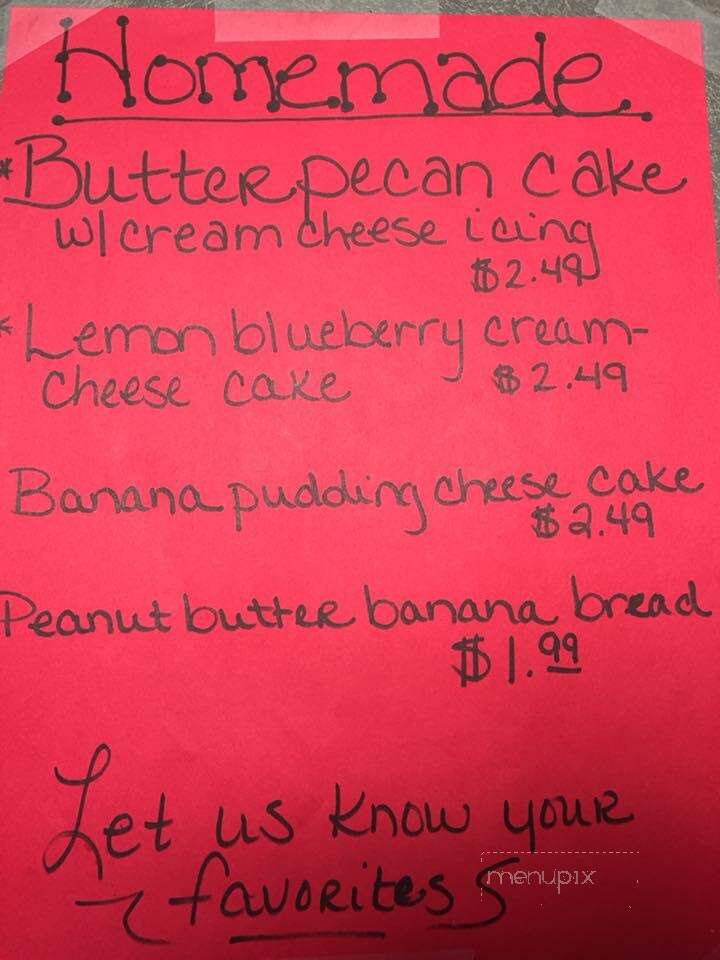 Homemade
*Butter pecan cake
w/ cream cheese icing
$2.49
*Lemon blueberry cream-
cheese cake $2.49
Banana pudding cheese cake
$2.49
Peanut butter banana bread
$1.99
Let us know your
favorites
menupix